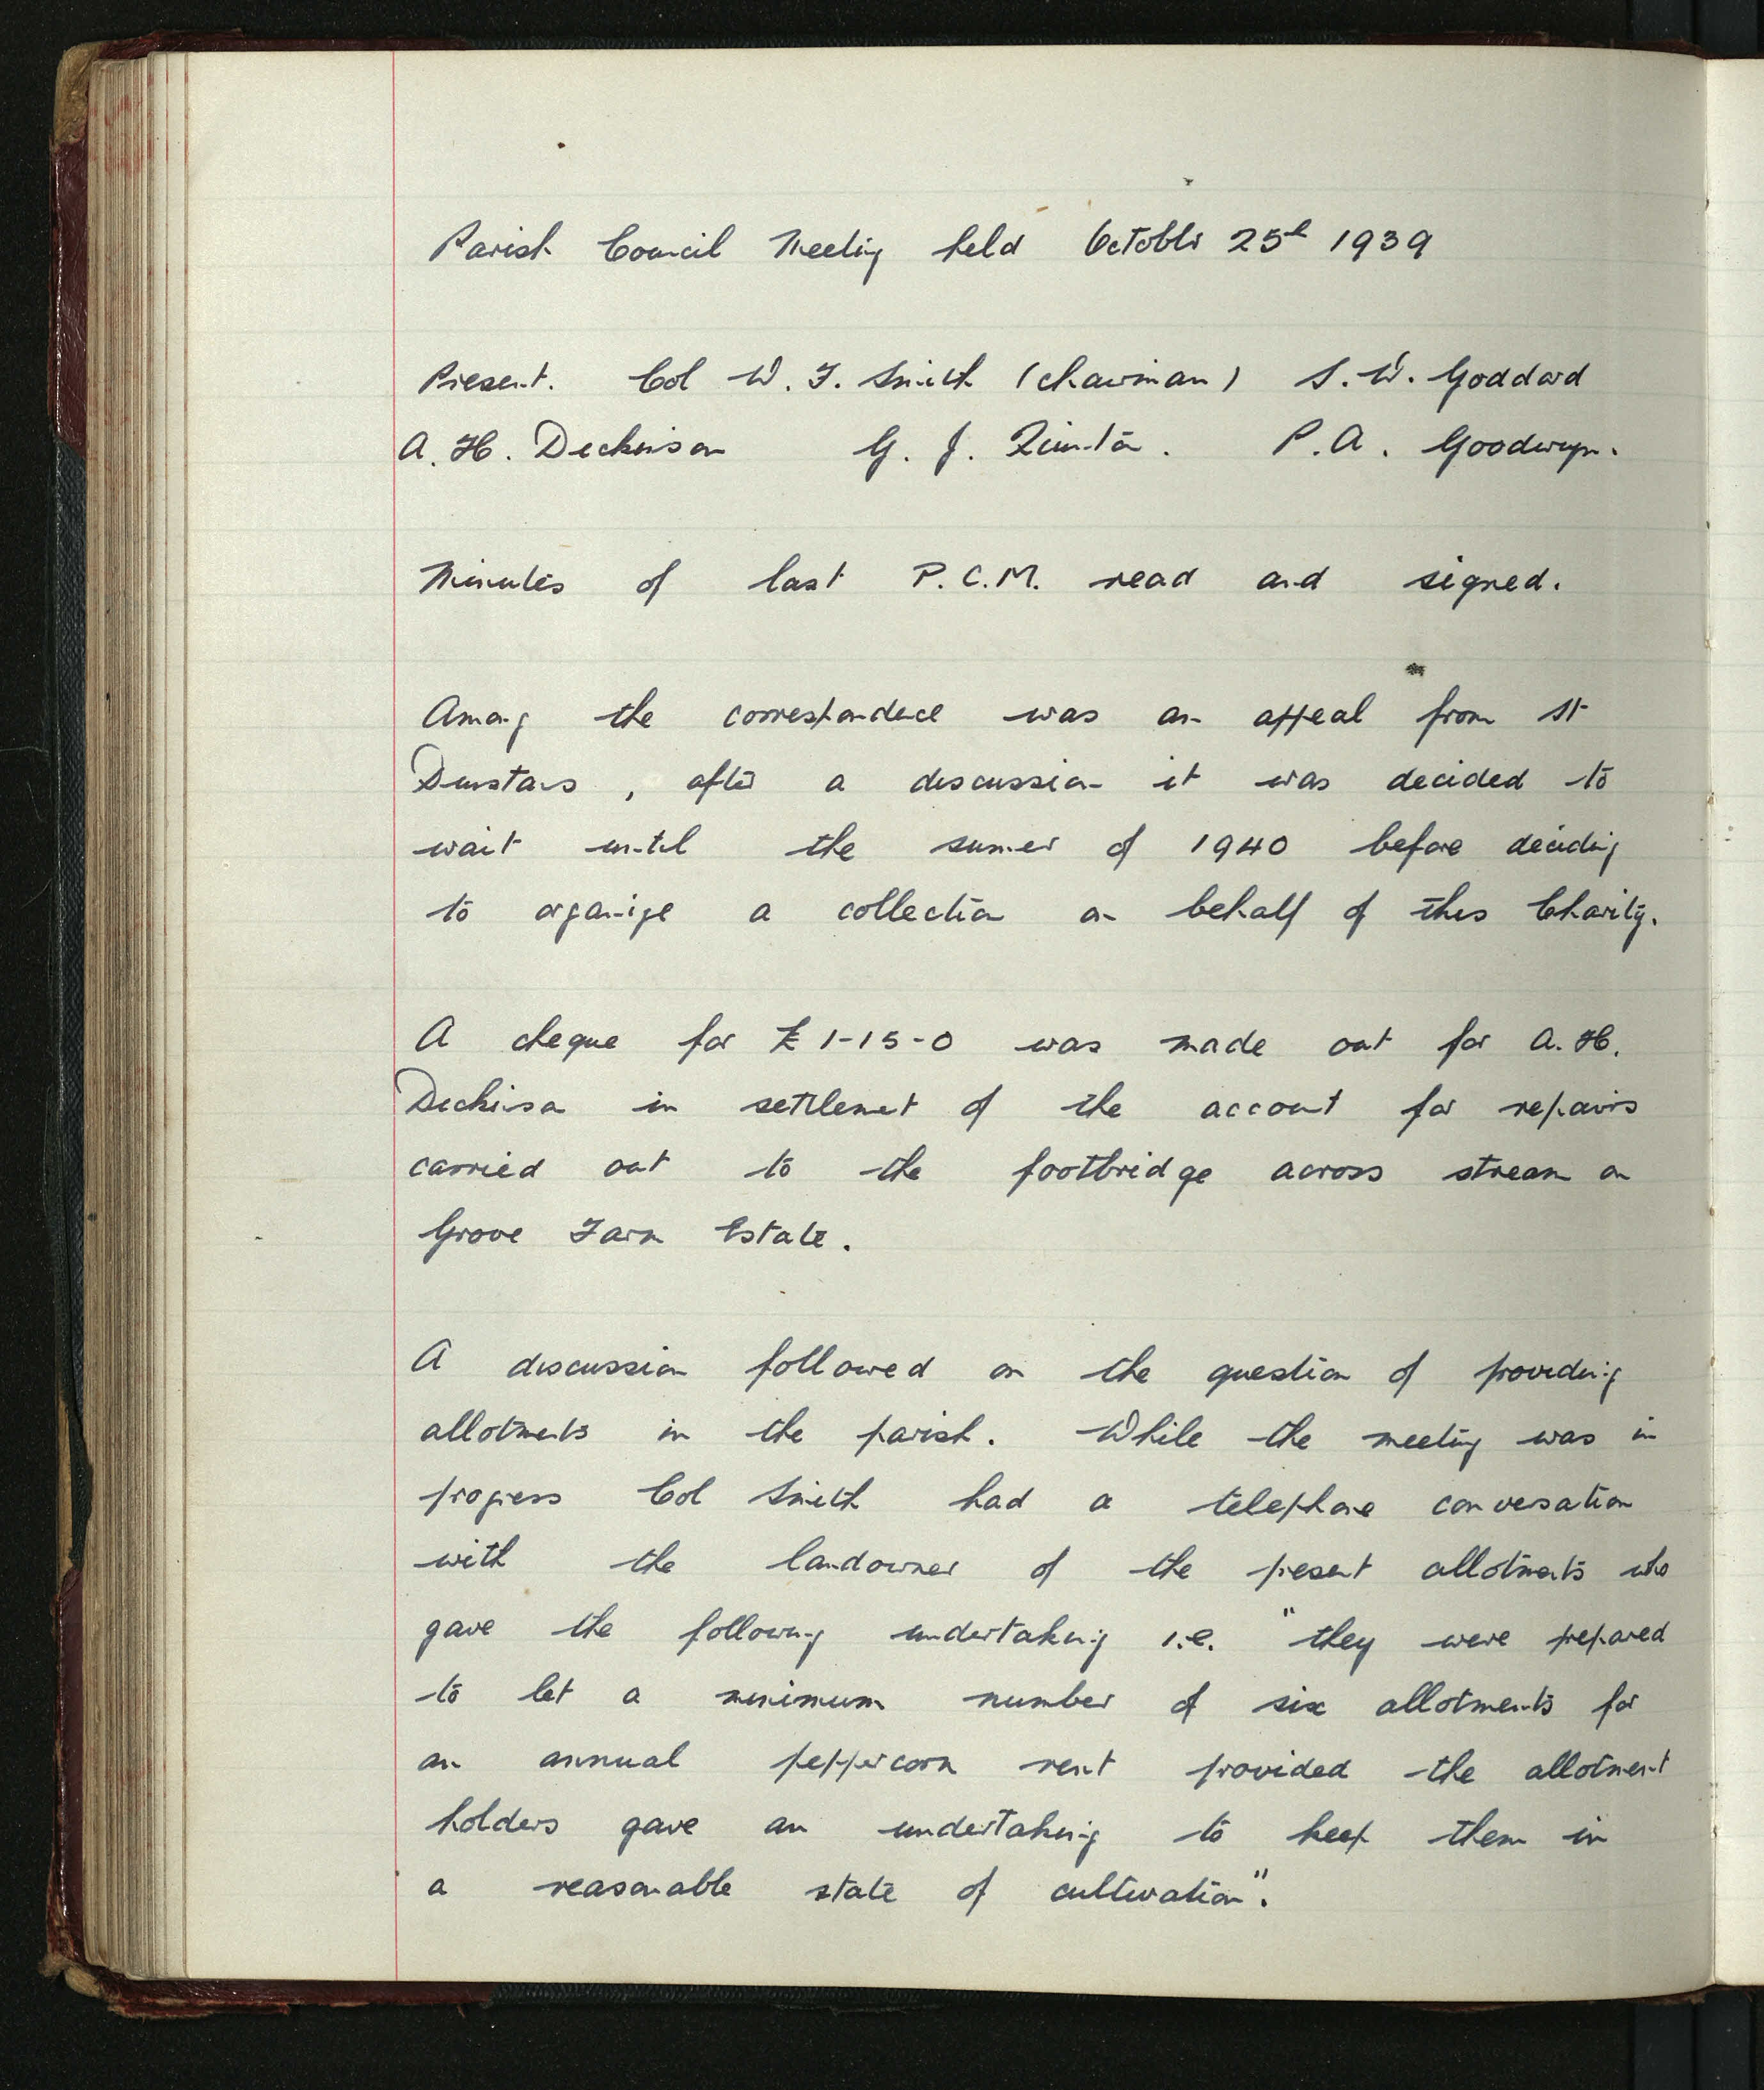 Parish Council Meeting held October 25th 1939
Present. Col W. F. Smith (chairman) S. W. Goddard
A. H. Dickinson G. J. P. A. Goodwyn.
Minutes of last P.C.M. read and signed.
Among the correspondence was an appeal from St
Dunstans, after a discussion it was decided to
wait until the summer of 1940 before deciding
to organize a collection on behalf of this Charity.
A cheque for £1-15-0 was made out for A. H.
Dickinson in settlement of the account for repairs
carried out to the footbridge across stream on
Grove Farm Estate.
A discussion followed on the question of providing
allotments in the parish. While the meeting was in
progress Col Smith had a telephone conversation
with the landowner of the present allotments who
gave the following undertaking i.e. "they were prepared
to let a minimum number of six allotments for
an annual peppercorn rent provided the allotment
holders gave an undertaking to keep them in
a reasonable state of cultivation".